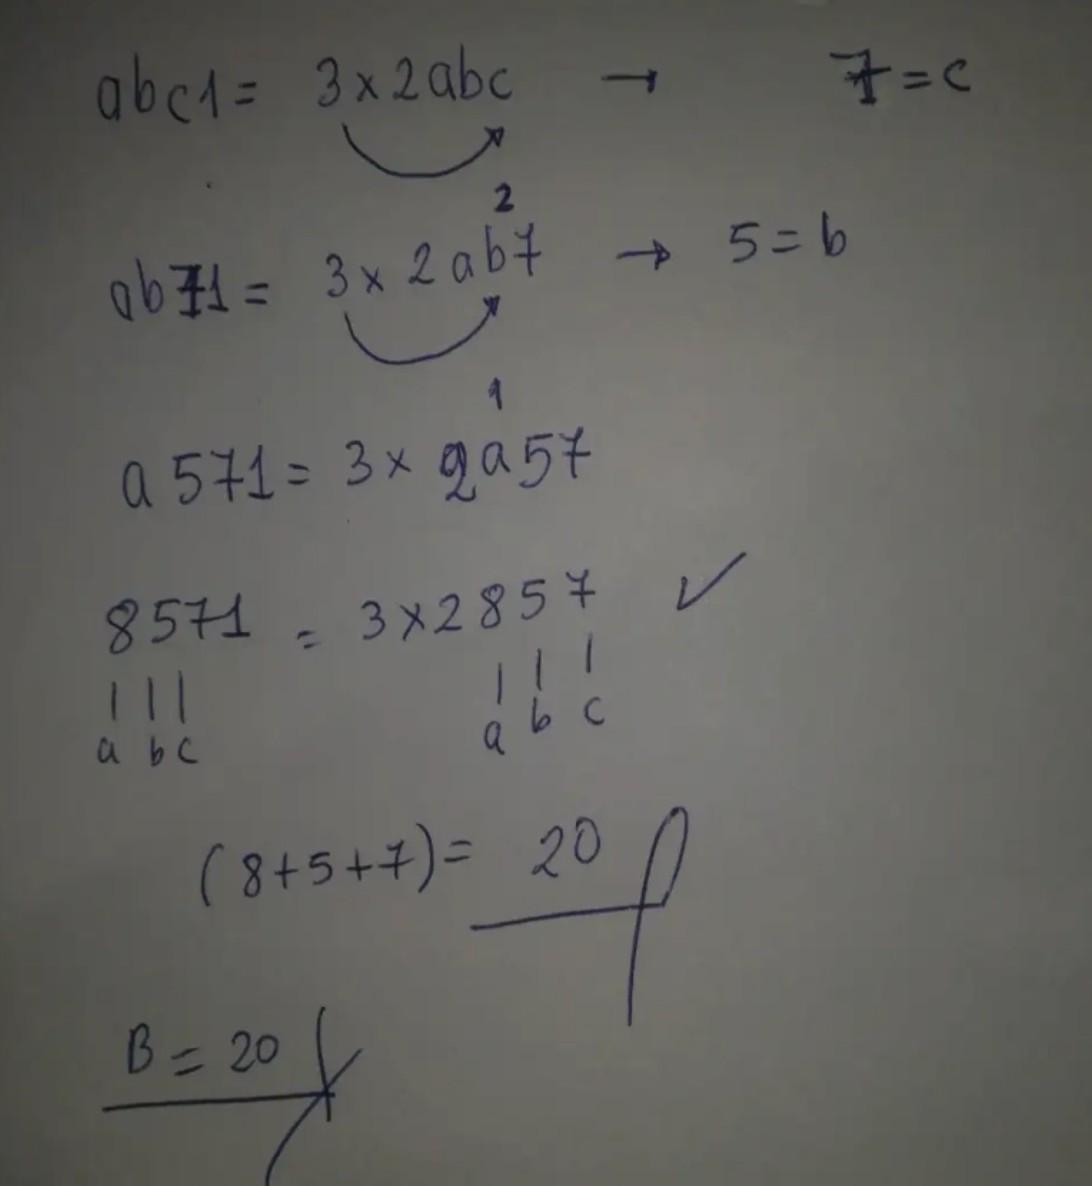 abc1 = 3 x 2abc → 7 = c
2
ab71 = 3 x 2ab7 → 5 = b
1
a571 = 3 x 2a57
8571 = 3 x 2857 ✓
a b c a b c
(8+5+7) = 20
B = 20